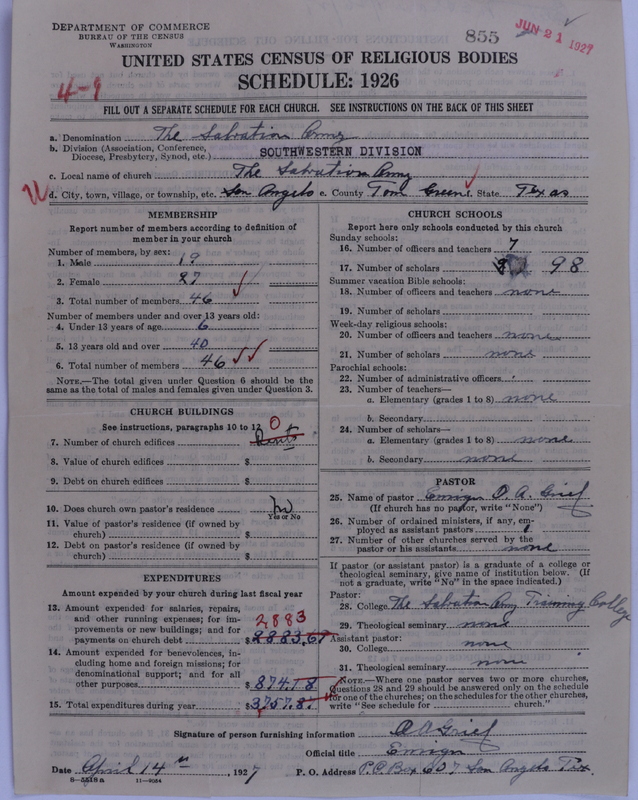 DEPARTMENT OF COMMERCE
BUREAU OF THE CENSUS
WASHINGTON
855
JUN 21 1927
UNITED STATES CENSUS OF RELIGIOUS BODIES
SCHEDULE: 1926
4-9
FILL OUT A SEPARATE SCHEDULE FOR EACH CHURCH. SEE INSTRUCTIONS ON THE BACK OF THIS SHEET
a. Denomination The Salvation Army
b. Division (Association, Conference, Diocese, Presbytery, Synod, etc.) SOUTHWESTERN DIVISION
c. Local name of church The Salvation Army
d. City, town, village, or township, etc. San Angelo e. County Tom Green f. State Texas
MEMBERSHIP
Report number of members according to definition of
member in your church
Number of members, by sex:
1. Male 19
2. Female 27
3. Total number of members 46
Number of members under and over 13 years old:
4. Under 13 years of age 6
5. 13 years old and over 40
6. Total number of members 46
NOTE.—The total given under Question 6 should be
same as the total of males and females given under Question 3.
CHURCH BUILDINGS
See instructions, paragraphs 10 to 12
7. Number of church edifices 0
8. Value of church edifices $
9. Debt on church edifices $
10. Does church own pastor's residence No
Yes or No
11. Value of pastor's residence (if owned by
church) $
12. Debt on pastor's residence (if owned by
church) $
EXPENDITURES
Amount expended by your church during last fiscal year
13. Amount expended for salaries, repairs,
and other running expenses; for im-
provements or new buildings; and for
payments on church debt $ 2883.67
2883
14. Amount expended for benevolences, in-
cluding home and foreign missions; for
denominational support; and for all
other purposes $ 874.18
15. Total expenditures during year $ 3757.8
CHURCH SCHOOLS
Report here only schools conducted by this church
Sunday schools:
16. Number of officers and teachers 7
17. Number of scholars 98
Summer vacation Bible schools:
18. Number of officers and teachers none
19. Number of scholars
Week-day religious schools:
20. Number of officers and teachers none
21. Number of scholars none
Parochial schools:
22. Number of administrative officers
23. Number of teachers—
a. Elementary (grades 1 to 8) none
b. Secondary
24. Number of scholars—
a. Elementary (grades 1 to 8) none
b. Secondary none
PASTOR
25. Name of pastor Ensign O. A. Grief
(If church has no pastor, write "None")
26. Number of ordained ministers, if any, em-
ployed as assistant pastors
27. Number of other churches served by the
pastor or his assistants none
If pastor (or assistant pastor) is a graduate of a college or
theological seminary, give name of institution below. (If
not a graduate, write "No" in the space indicated.)
Pastor:
28. College The Salvation Army Training College
29. Theological seminary none
Assistant pastor:
30. College none
31. Theological seminary none
NOTE.—Where one pastor serves two or more churches,
Questions 28 and 29 should be answered only on the schedule
for one of the churches; on the schedules for the other churches,
write "See schedule for church."
Signature of person furnishing information O A Grief
Official title Ensign
Date April 14th, 1927 P. O. Address P.O Box 607 San Angelo Tex.
8-5518a 11-9054